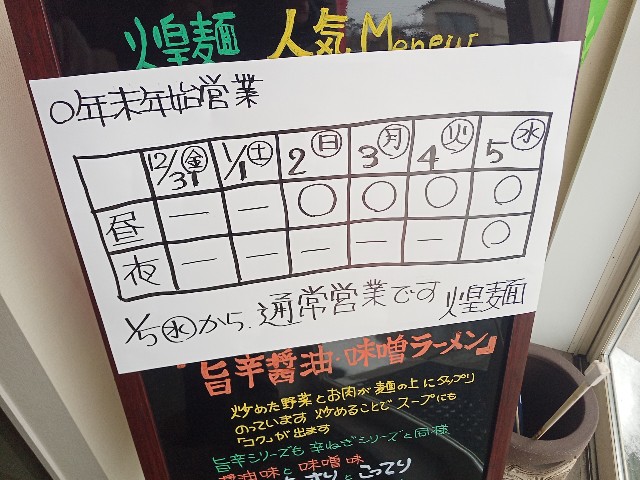 煌麺 人気Menew
〇年末年始営業
12/31㊎ 1/1㊏ 2㊐ 3㊊ 4㊋ 5㊌
昼 ー ー 〇 〇 〇 〇
夜 ー ー ー ー ー 〇
1/5㊌から、通常営業です 煌麺
『旨辛醬油・味噌ラーメン』
炒めた野菜とお肉が麺の上にタップリ
のっています 炒めることでスープにも
「コク」が出ます
旨辛シリーズも辛ねぎシリーズと同様
醤油味と味噌味
こってり